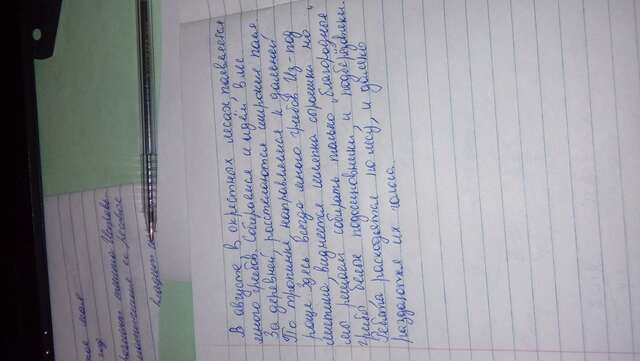 В августе в окрестных лесах появляется
много грибов. Собираемся и идём в лес
За деревней расстилаются широкие поля
По тропинке направляемся к дальней
роще. Здесь всегда много грибов. Из-под
листика виднеется шляпка сыроежки но
мы решаем собирать только благородные
грибы белые подосиновики, и подберёзовики.
Ребята расходятся по лесу, и далеко
раздаются их голоса.